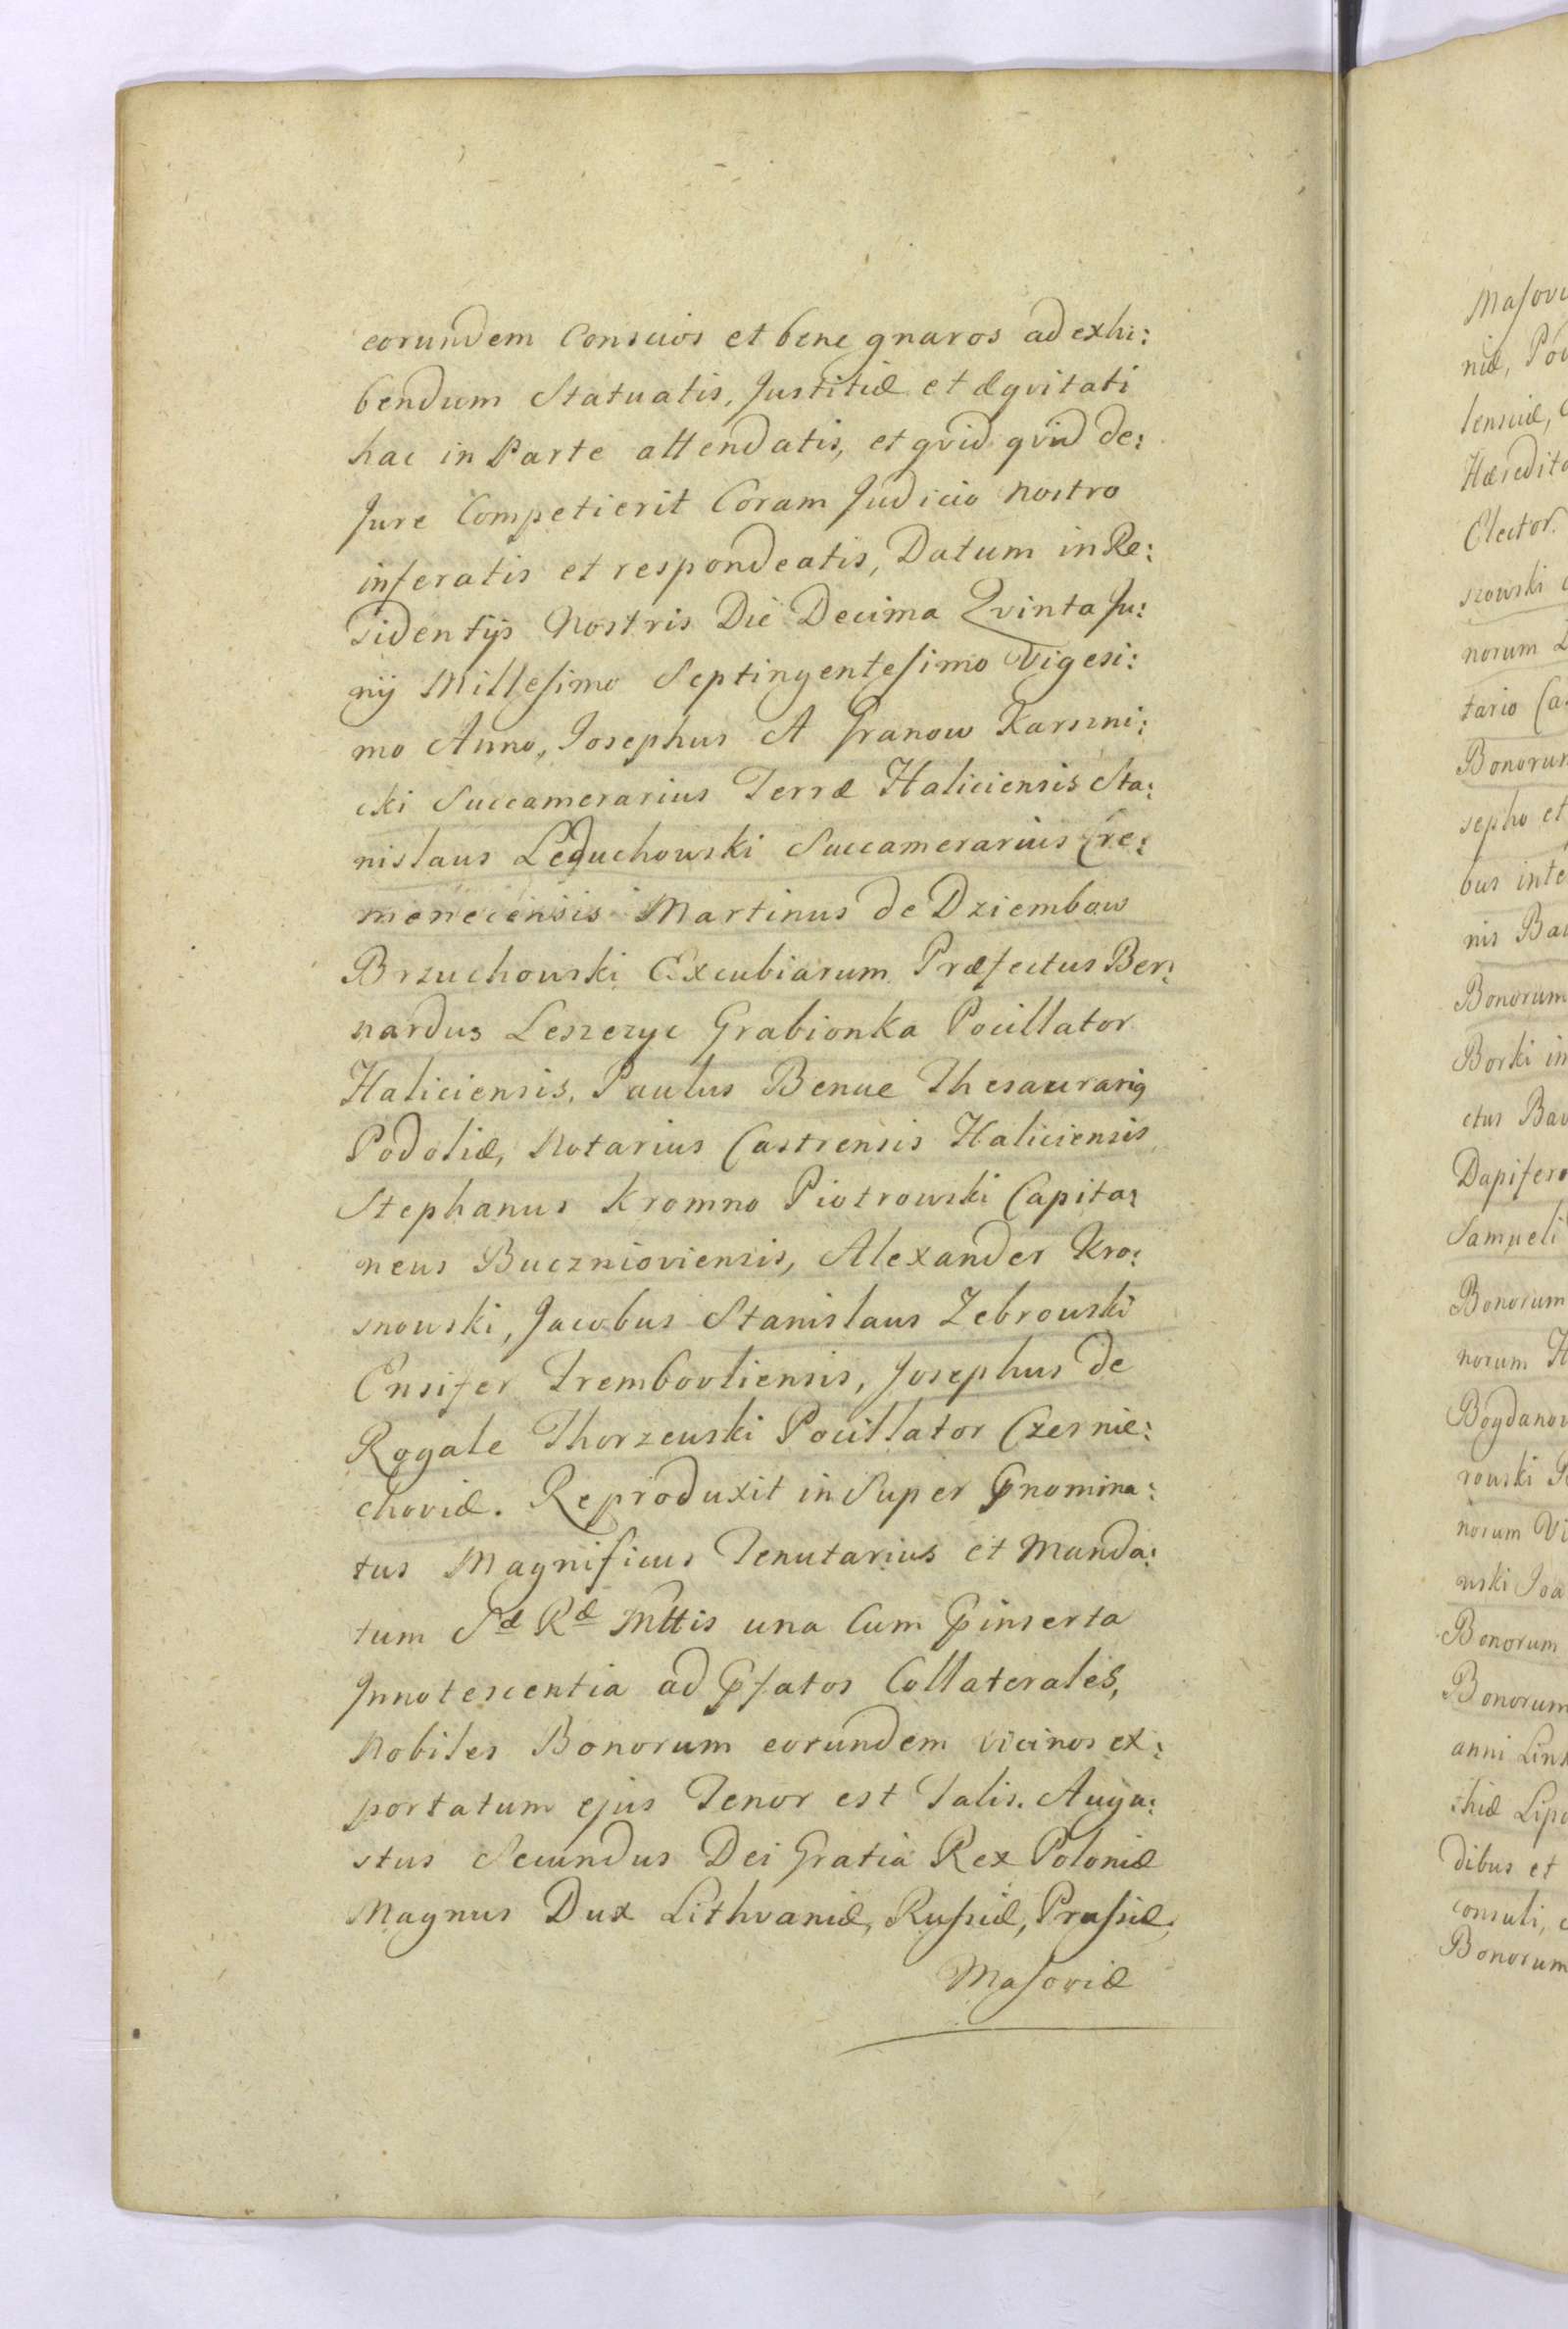 eorundem Conscios et bene gnaros ad exhi:
bendum Statuatis, Justitiæ et æqvitati
hac in Parte attendatis, et qvid qvid de:
Jure Competierit Coram Judicio nostro
inferatis et respondeatis, Datum in Re:
sidentÿs Nostris Die Decima Qvinta Ju:
nÿ Millesimo Septingentesimo Vigesi:
mo Anno, Josephus A Granow Karszni:
cki Succamerarius Terræ Haliciensis Sta:
nislaus Leduchowski Succamerarius Cre:
menecensis Martinus de Dziembow
Brzuchowski Excubiarum Præfectus Ber:
nardus Leszczyc Grabionka Pocillator
Haliciensis, Paulus Benue Thesaurarig
Podoliæ, Notarius Castrensis Haliciensis,
Stephanus Kromno Piotrowski Capita:
neus Buczniоviensis, Alexander Kro:
snowski, Jacobus Stanislaus Zebrowski
Ensifer Trembovliensis, Josephus de
Rogale Thorzewski Pocillator Czernie:
choviæ. Reproduxit in Super Pnomina:
tus Magnificus Tenutarius et Manda:
tum Sæ Ræ Mttis una Cum Pinserta
Innotescentia ad Pfatos Collaterales,
Nobiles Bonorum eorundem vicinos ex:
portatum ejus Tenor est Talis. Augu:
stus Secundus Dei Gratia Rex Poloniæ
Magnus Dux Lithvaniæ, Russiæ, Prussiæ,
Masoviæ
Masovi
niæ, Po
Elector.
szowski
norum
tario Ca
Bonorum
sepho et
bus inte
nis Ba
Bonorum
Borki in
ctus Bav
Dapifero
Samueli
Bonorum
norum H
Bogdanov
rowski
norum Vi
wski Joa
Bonorum
Bonorum
anni Lin
thiæ Lip
dibus et
consuli,
Bonorum